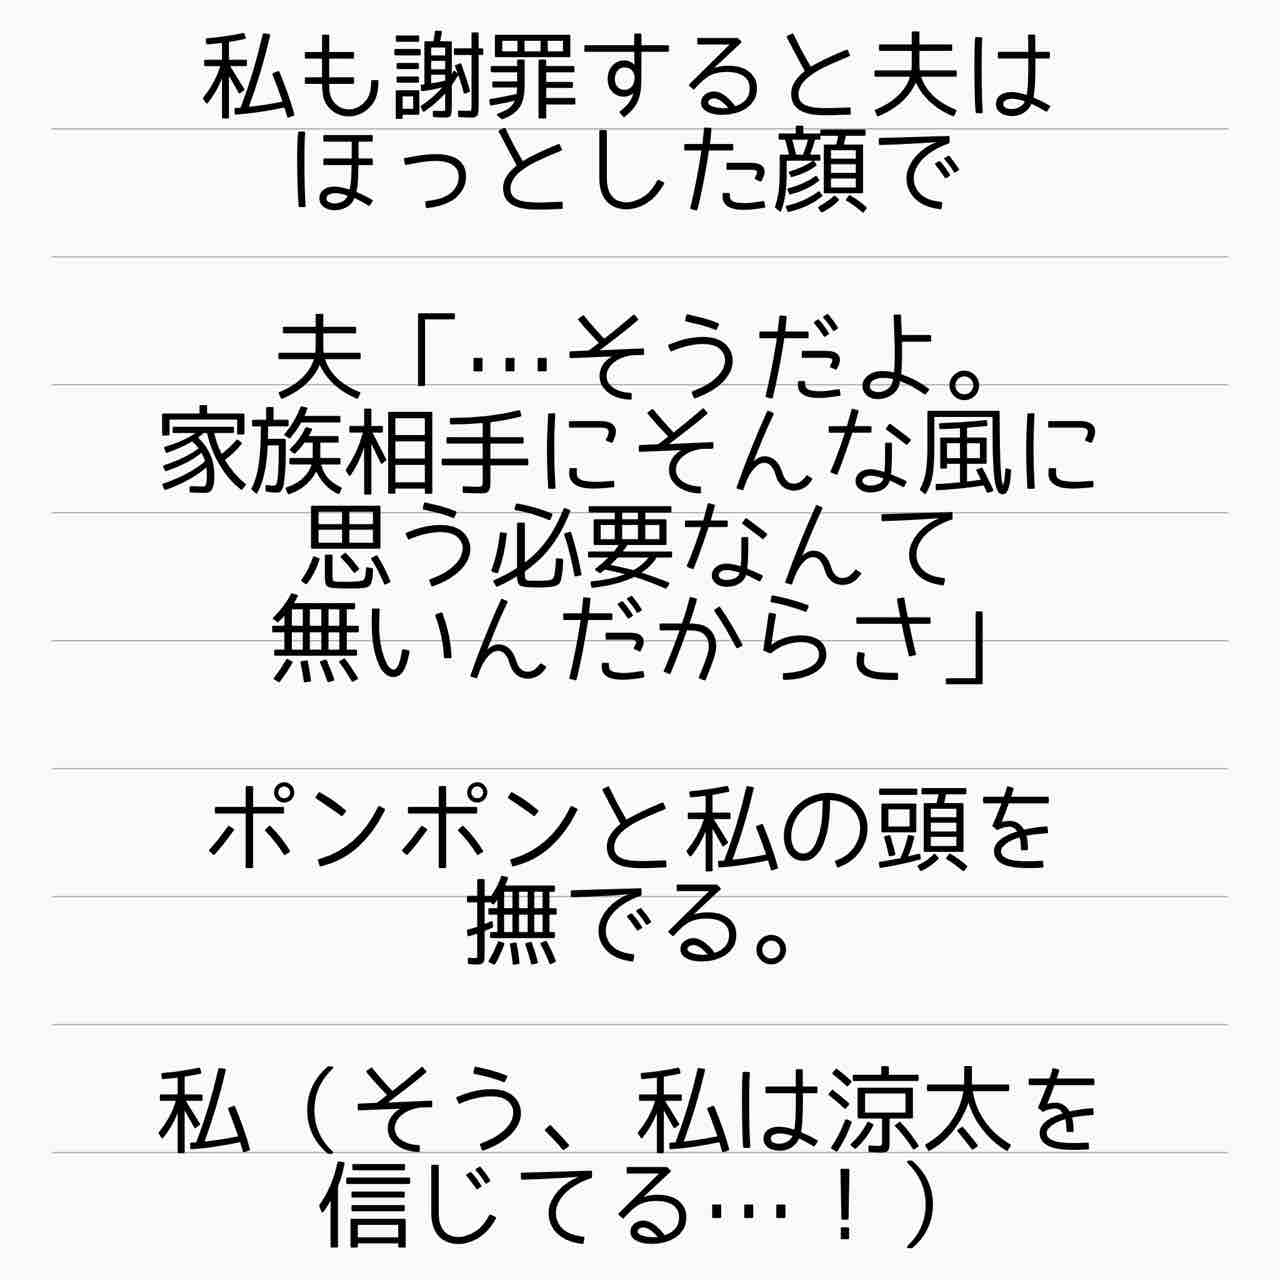 私も謝罪すると夫は
ほっとした顔で
夫「…そうだよ。
家族相手にそんな風に
思う必要なんて
無いんだからさ」
ポンポンと私の頭を
撫でる。
私（そう、私は涼太を
信じてる…！）